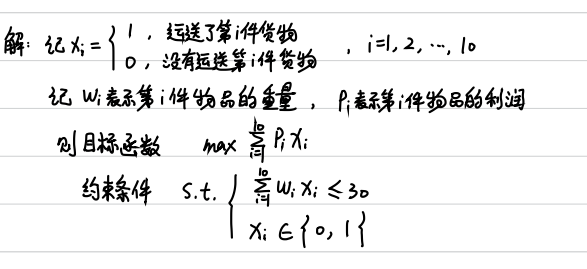 解: 记 xᵢ = { 1, 运送了第i件货物
0, 没有运送第i件货物 , i=1,2,…,10
记 Wᵢ表示第i件物品的重量, Pᵢ表示第i件物品的利润
则目标函数 max ∑_{i=1}^{10} Pᵢxᵢ
约束条件 s.t. { ∑_{i=1}^{10} Wᵢxᵢ ≤ 30
xᵢ ∈ {0,1}